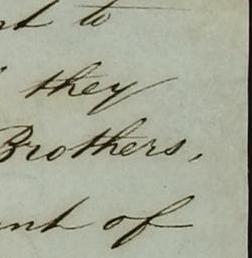 to
they
Brothers,
of